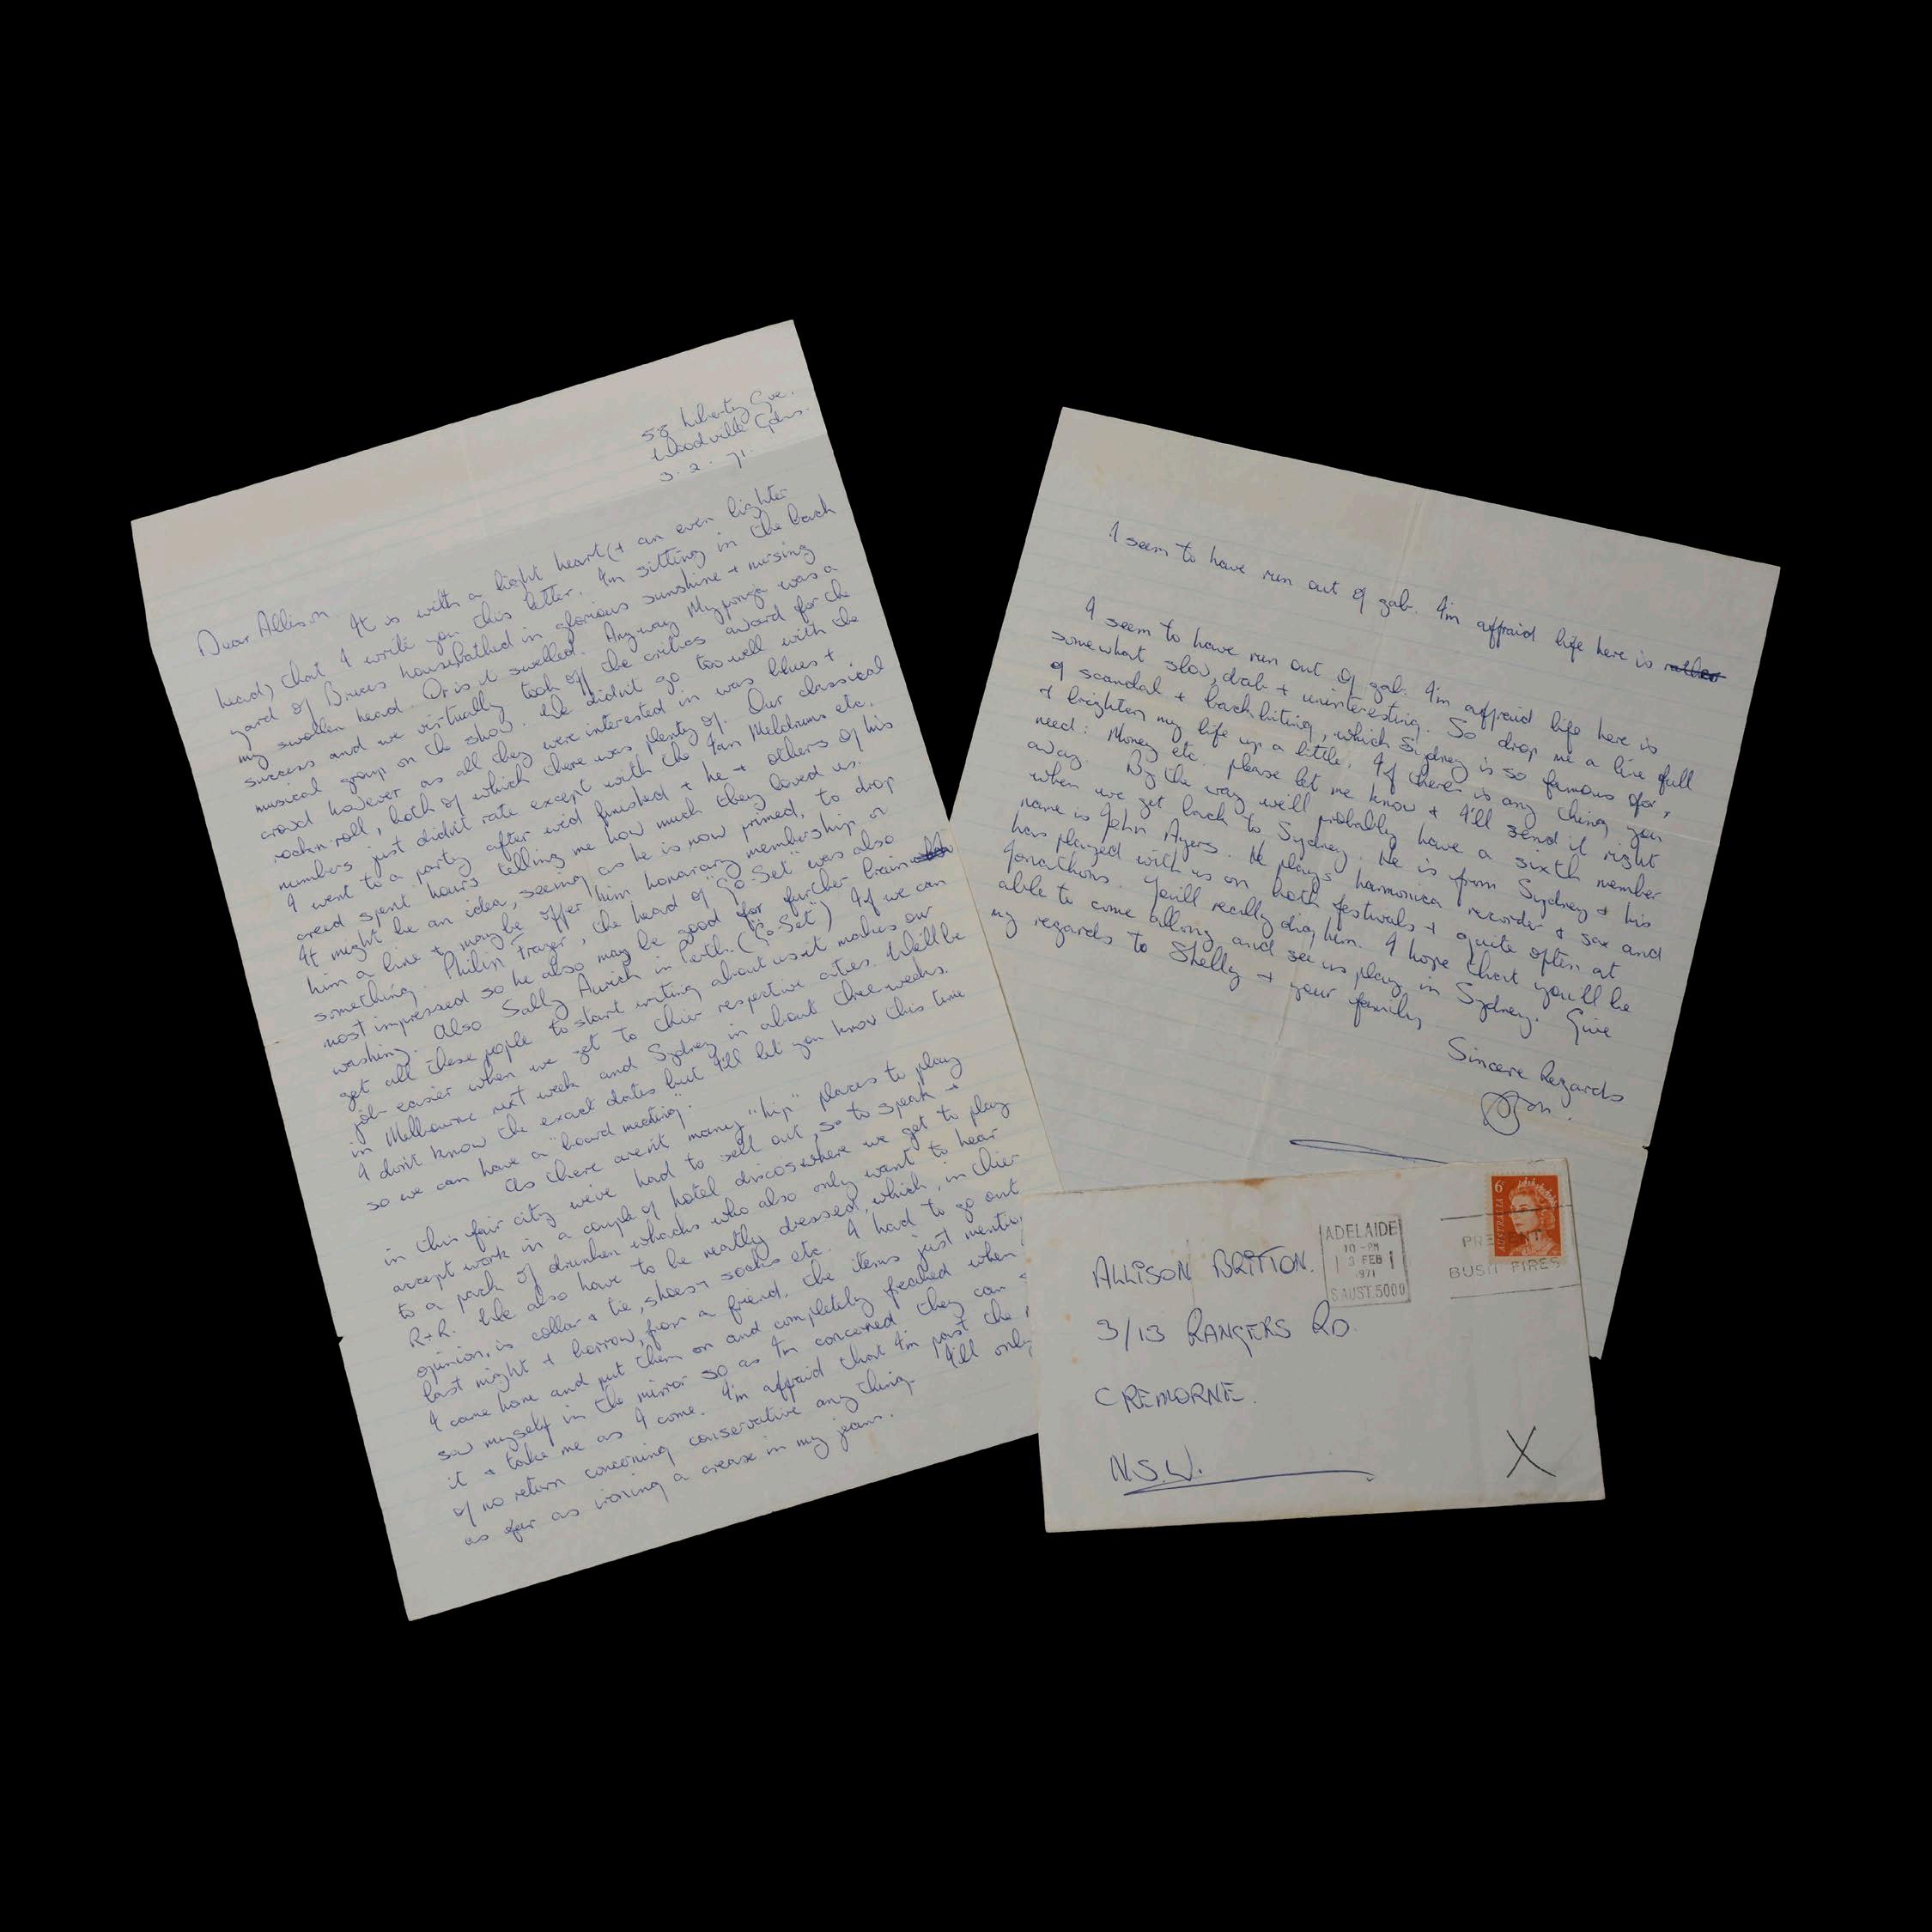 58 Liberty Gve.
Woodville Gdns.
3.2.71.
Dear Allison
It is with a light heart (+ an even lighter
head) that I write you this letter. I'm sitting in the back
yard of Bruces house bathed in glorious sunshine + nursing
my swollen head. Or is it swelled. Anyway Myponga was a
success and we virtually took off the critics award for the
musical group on the show. We didn't go too well with the
crowd however as all they were interested in was blues +
rock n roll, both of which there was plenty of. Our classical
numbers just didn't rate except with the Ian Meldrums etc.
I went to a party after we'd finished + he + others of his
creed spent hours telling me how much they loved us.
It might be an idea, seeing as he is now primed, to drop
him a line + maybe offer him honorary membership or
something. Philip Frazer, the head of "Go-Set" was also
most impressed so he also may be good for further brain
washing. Also Sally Aurich in Perth. ("Go-Set") If we can
get all these people to start writing about us it makes our
job easier when we get to their respective cities. We'll be
in Melbourne next week and Sydney in about three weeks.
I don't know the exact dates but I'll let you know this time
so we can have a "board meeting".
As there aren't many "hip" places to play
in this fair city we've had to sell out, so to speak +
accept work in a couple of hotel discos where we get to play
to a pack of drunken whacks who also only want to hear
R+R. We also have to be neatly dressed, which, in their
opinion, is collar + tie, shoes + socks etc. I had to go out
last night + borrow, from a friend, the items just
I came home and put them on and completely freaked when
saw myself in the mirror so as I'm concerned they can
it + take me as I come. I'm affraid that I'm past the
of no return concerning conservative any thing. I'll only
as far as ironing a crease in my jeans.
I seem to have run out of gab. I'm affraid life here is rather
I seem to have run out of gab. I'm affraid life here is
somewhat slow, drab + uninteresting. So drop me a line full
of scandal + backbiting, which Sydney is so famous for,
+ brighten my life up a little. If there is any thing you
need: Money etc. please let me know + I'll send it right
away. By the way we'll probably have a sixth member
when we get back to Sydney. He is from Sydney + his
name is John Ayers. He plays harmonica recorder + sax and
has played with us on both festivals + quite often at
Jonathons. You'll really dig him. I hope that you'll be
able to come allong and see us play in Sydney. Give
my regards to Shelly + your family
Sincere Regards
Bon.
6c
AUSTRALIA
ADELAIDE
10 - PM
3 FEB
1971
S AUST. 5000
PRE
BUSH FIRES
ALLISON BRITTON.
3/13 RANGERS RD.
CREMORNE.
N.S.W.
X